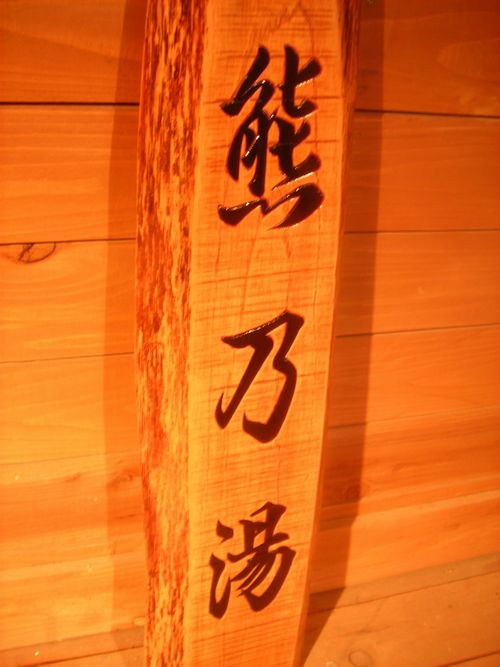 熊乃湯